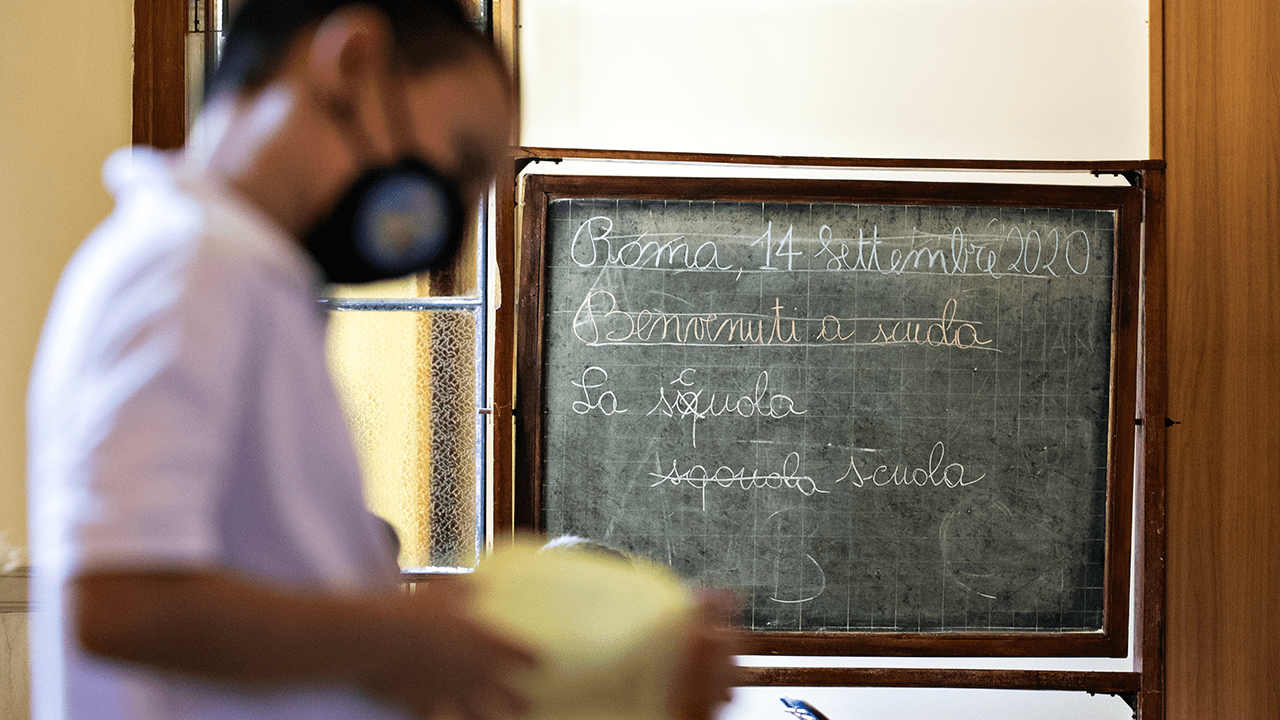 Roma, 14 Settembre 2020
Benvenuti a scuola
La scuola
squola scuola